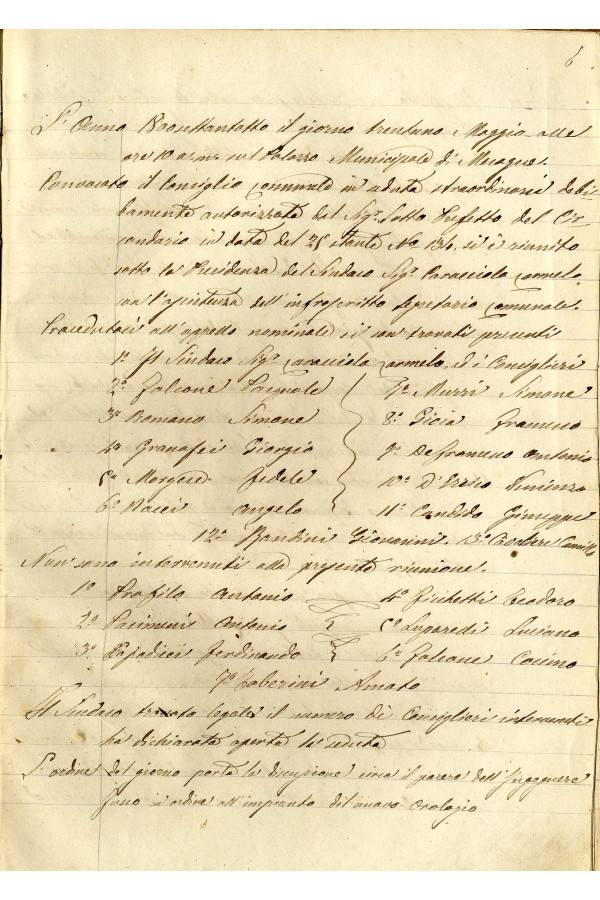 6
L'Anno 1800settantotto il giorno trentuno Maggio alle
ore 10 a.m. nel Palazzo Municipale di Mesagne.
Convocato il Consiglio Comunale in seduta straordinaria debi-
tamente autorizzata dal Sigr. Sotto Prefetto del Cir-
condario in data del 25 stante No 134, si è riunito
sotto la Presidenza del Sindaco Sigr. Caracciolo Carmelo,
con l'assistenza dell'infrascritto Segretario Comunale.
Procedutosi all'appello nominale si son trovati presenti
1o Il Sindaco Sigr. Caracciolo Carmelo, ed i Consiglieri
2o Falcone Pasquale 7o Murri Simone
3o Romano Simone 8o Gioia Francesco
4o Granafei Giorgio 9o Defrancesco Antonio
5o Morgese Fedele 10o D'Errico Vincenzo
6o Bacci Angelo 11o Candido Giuseppe
12o Bandini Giovanni. 13o Cavaliere Camillo
Non sono intervenuti alla presente riunione.
1o Profilo Antonio 4o Ficchetti Teodoro
2o Pacimeni Antonio 5o Lugaresi Luciano
3o Papadici Ferdinando 6o Falcone Cosimo
7o Zaberini Amato
Il Sindaco trovato legale il numero di Consiglieri intervenuti
ha dichiarata aperta la seduta
L'ordine del giorno porta la discussione circa il parere dell'Ingegnere
Fusco in ordine all'impianto del nuovo Orologio